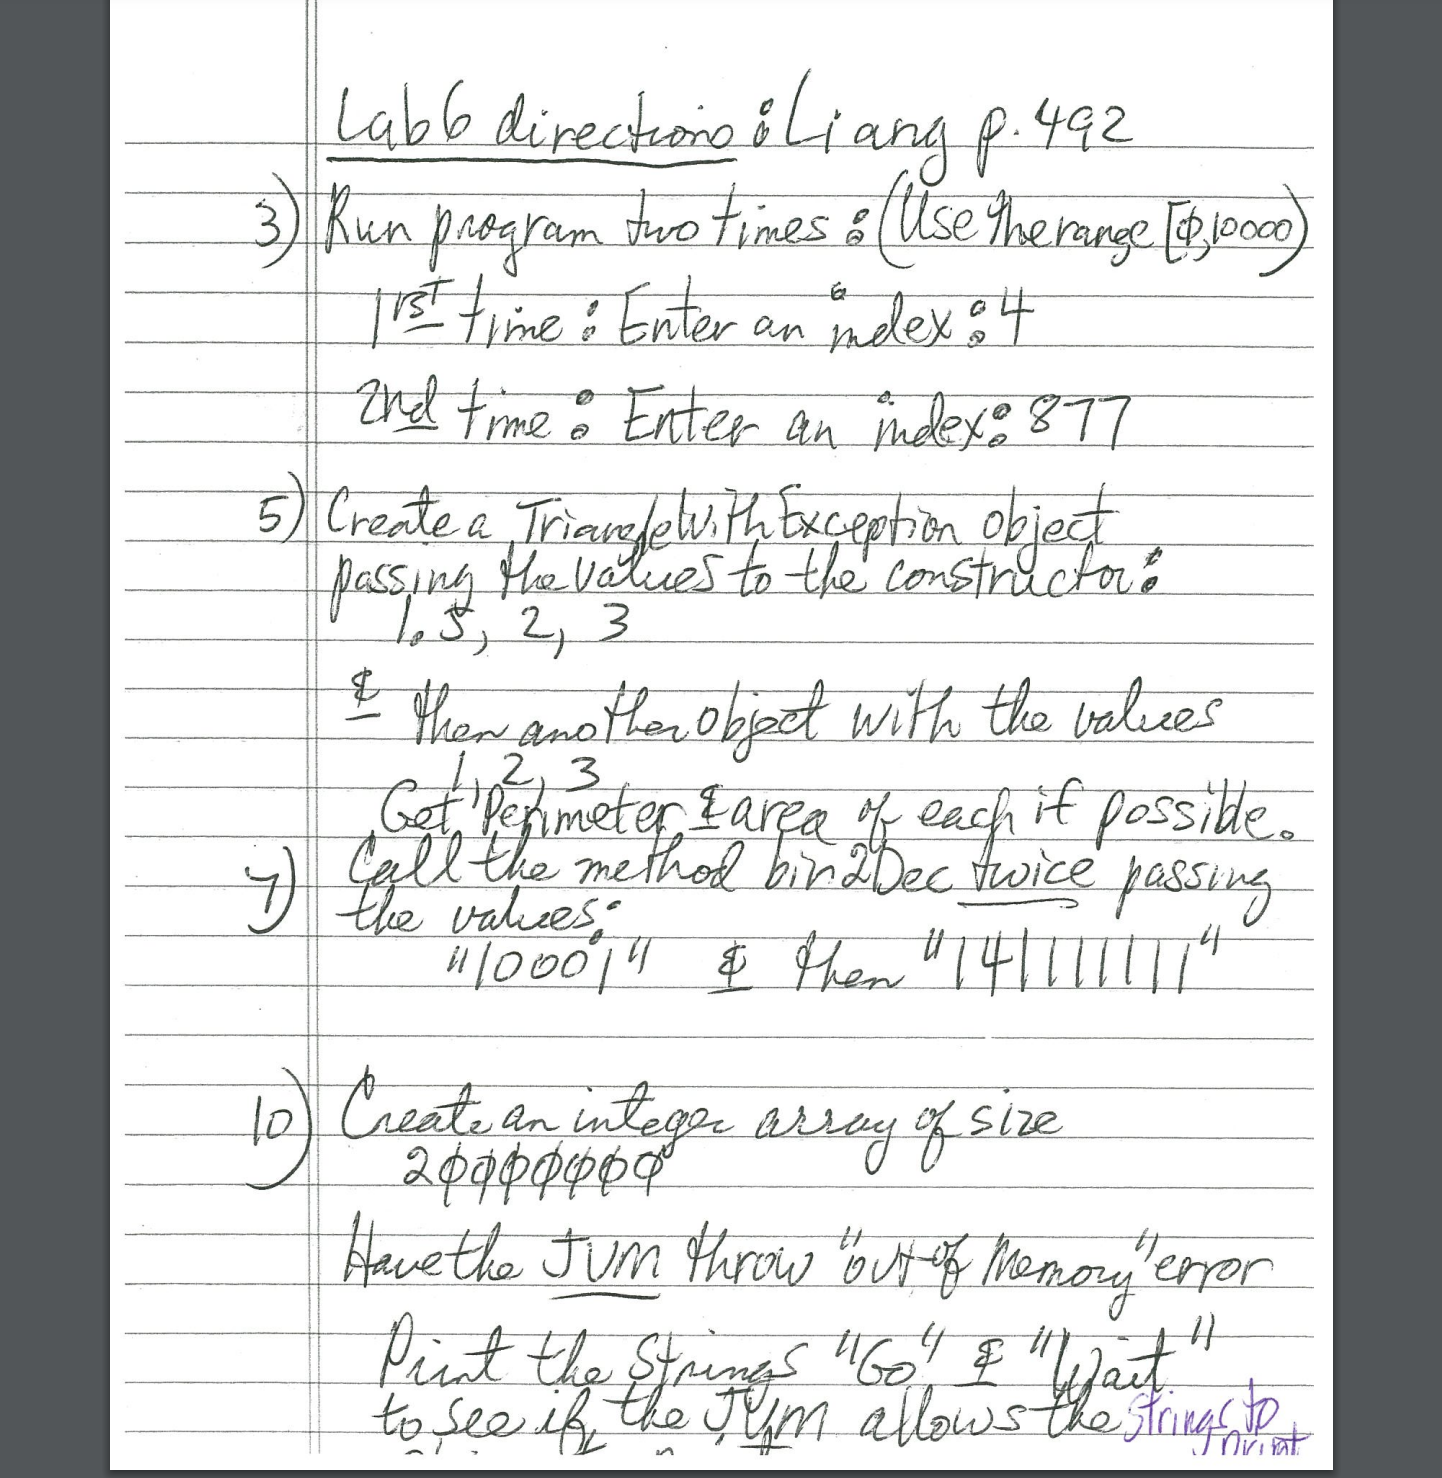 Lab 6 directions : Liang p. 492
3) Run program two times : (Use the range [0,10000)
1rst time : Enter an index : 4
2nd time : Enter an index : 877
5) Create a TriangleWithException object
passing the values to the constructor :
1.5, 2, 3
& then another object with the values
1, 2, 3
Get Perimeter & area of each if possible.
7) Call the method bin2Dec twice passing
the values:
"10001" & then "141111111"
10) Create an integer array of size
20000000
Have the JVM throw "out of Memory" error
Print the Strings "Go" & "Wait"
to see if the JVM allows the strings to
print